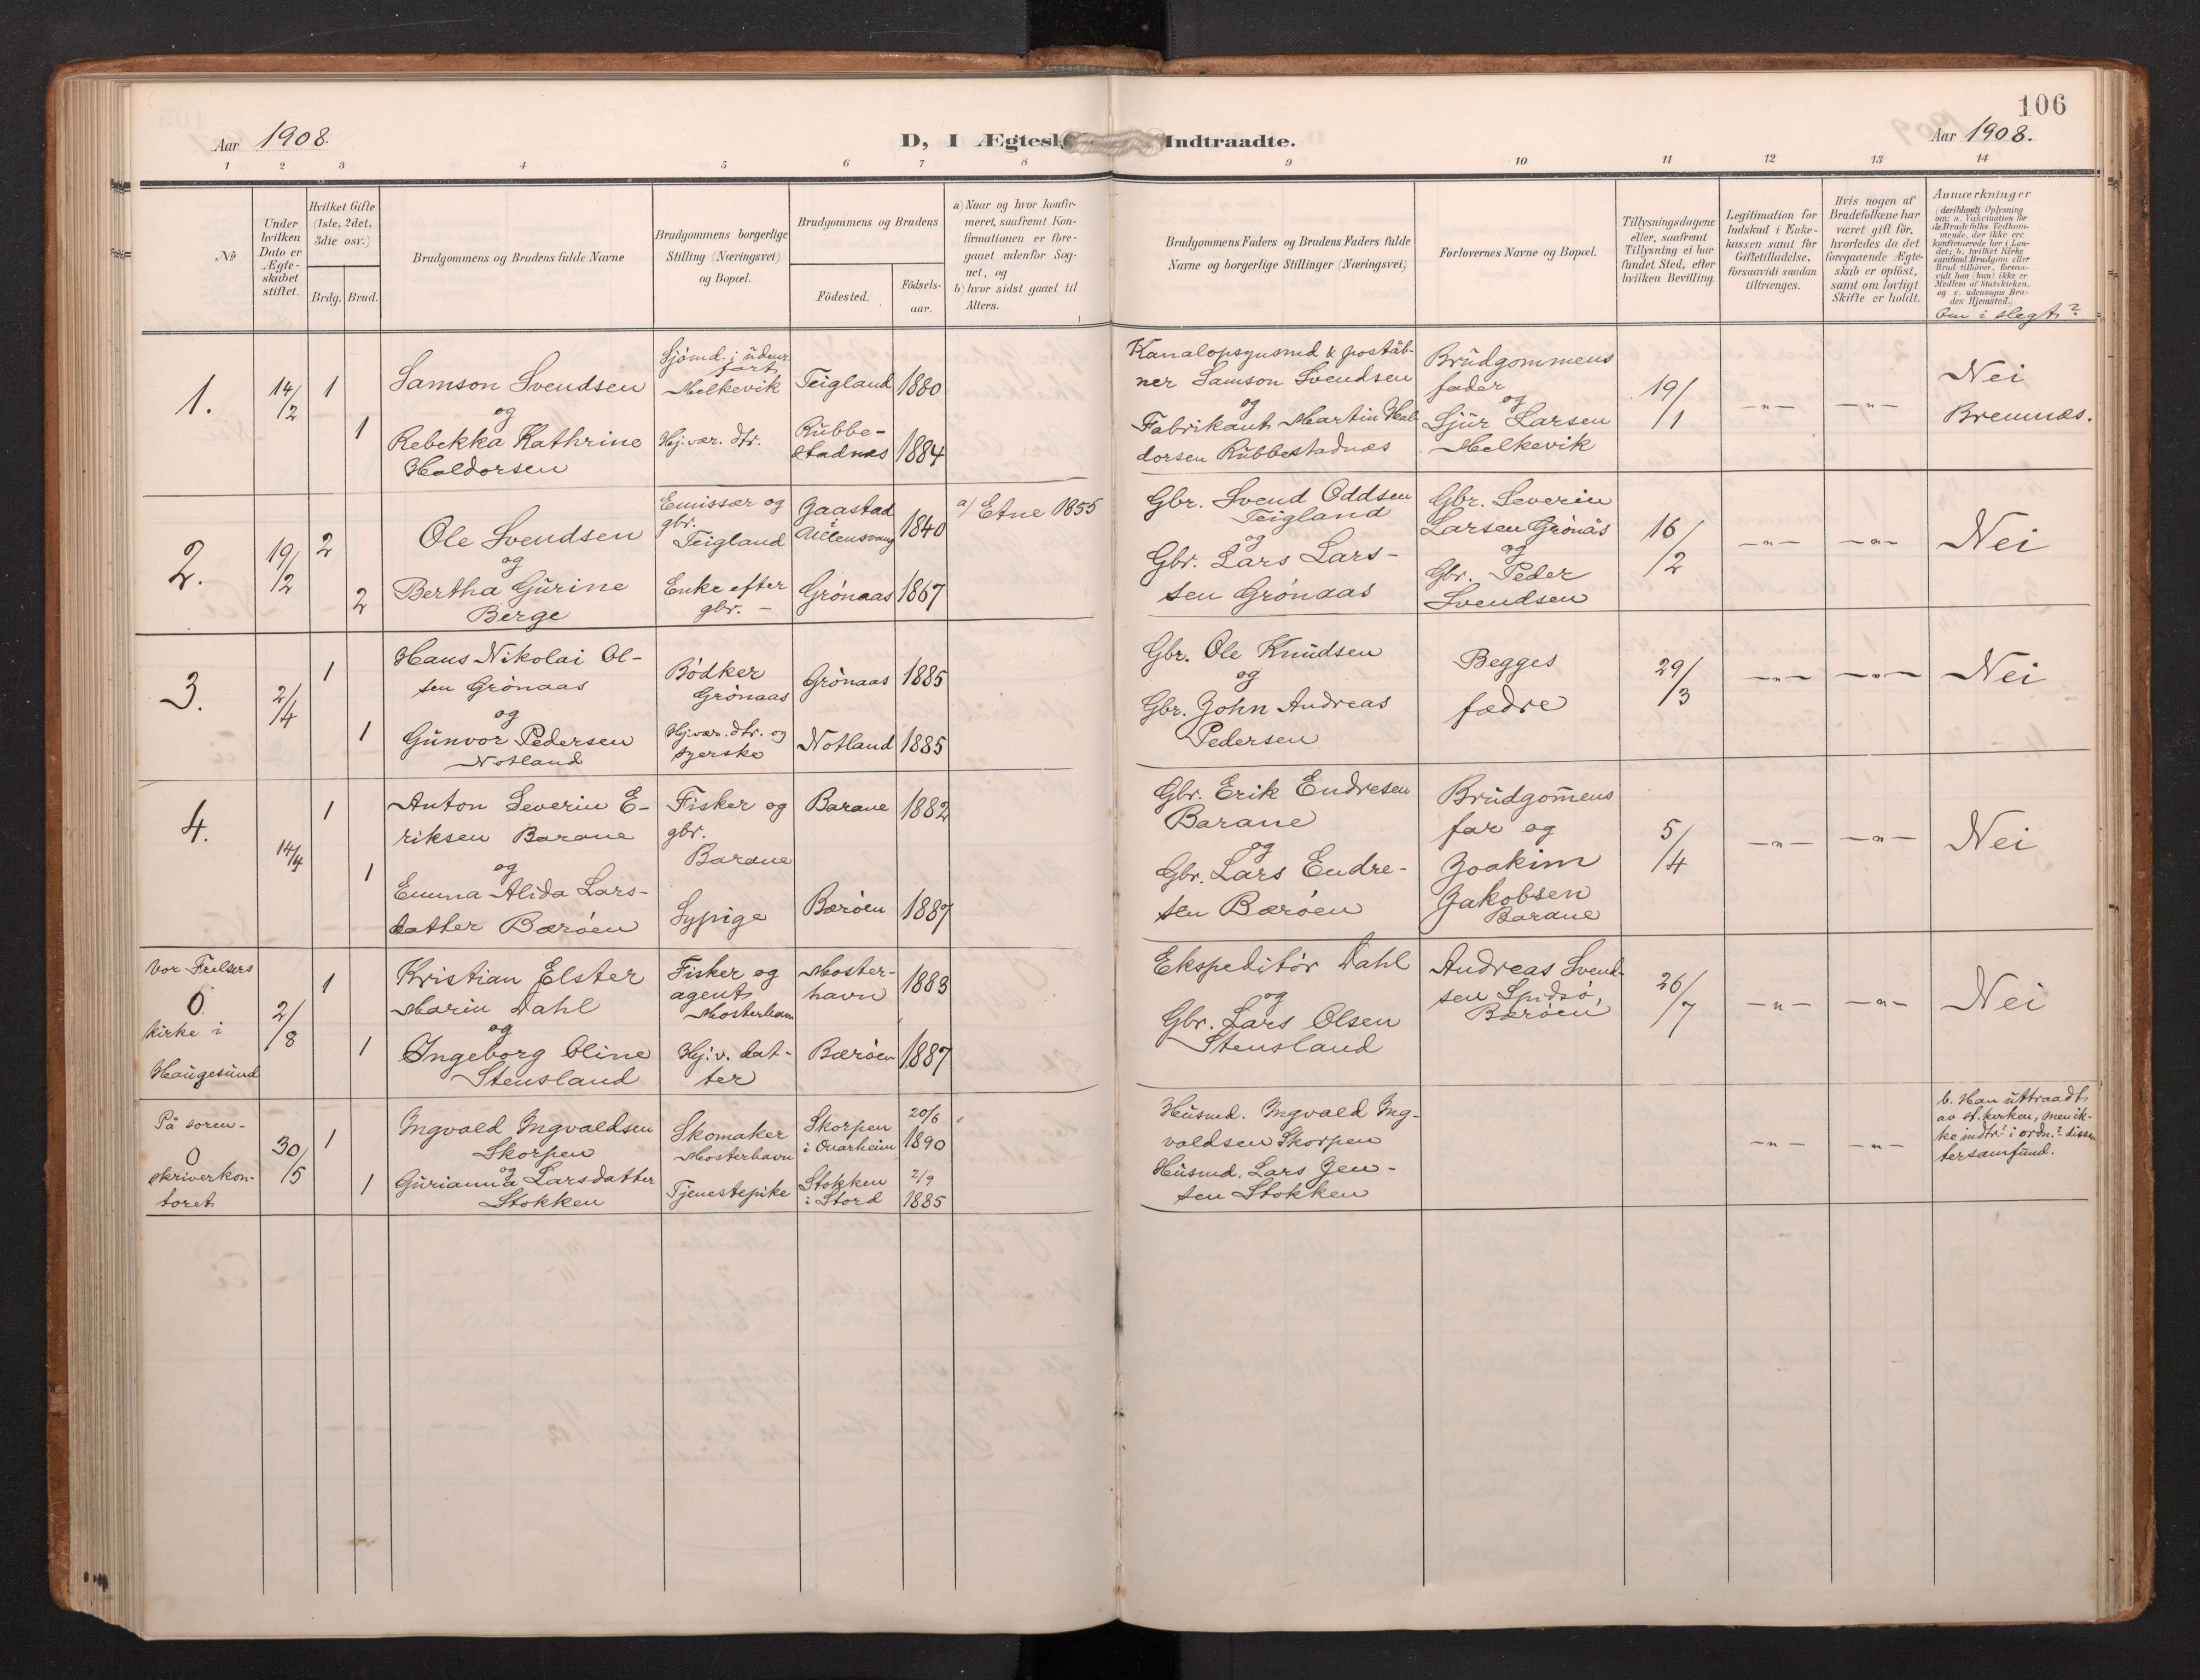 106
Aar 1908.
D, I Ægtesk Indtraadte.
Aar 1908.
1 2 3 4 5 6 7 8 9 10 11 12 13 14
No
Under hvilken Dato er Ægte-skabet stiftet.
Hvilket Gifte (1ste, 2det, 3die osv.)
Brdg. Brud.
Brudgommens og Brudens fulde Navne
Brudgommens borgerlige Stilling (Næringsvei) og Bopæl.
Brudgommens og Brudens
Födested.
Födsels-aar.
a) Naar og hvor konfir-
meret, saafremt Kon-
firmationen er fore-
gaaet udenfor Sog-
net, og
b) hvor sidst gaaet til
Alters.
Brudgommens Faders og Brudens Faders fulde
Navne og borgerlige Stillinger (Næringsvei)
Forlovernes Navne og Bopæl.
Tillysningsdagene
eller, saafremt
Tillysning ei har
fundet Sted, efter
hvilken Bevilling.
Legitimation for
Indskud i Enke-
kassen samt for
Giftetilladelse,
forsaavidt saadan
tiltrænges.
Hvis nogen af
Brudefolkene har
været gift för,
hvorledes da det
foregaaende Ægte-
skab er oplöst,
samt om lovligt
Skifte er holdt.
Anmærkninger
(deriblandt Oplysning
om: a. Vakcination for
de Brudefolks Vedkom-
mende, der ikke ere
konfirmerede her i Lan-
det; b. hvilket Kirke-
samfund Brudgom eller
Brud tilhörer, forsaa-
vidt han (hun) ikke er
Medlem af Statskirken.
og c. udensogns Bru-
des Hjemsted.)
Om i slegt?
1.
14/2
1
1
Samson Svendsen
og
Rebekka Kathrine
Haldorsen
Sjømd. i udenr.
fart
Melkevik
Hj:vær. dtr.
Teigland
Rubbe-
stadnæs
1880
1884
Kanalopsynsmd & poståb-
ner Samson Svendsen
og
Fabrikant Martin Hal-
dorsen Rubbestadnæs
Brudgommens
fader
og
Sjur Larsen
Melkevik
19/1
— " —
— " —
Nei
Bremnæs.
2.
19/2
2
2
Ole Svendsen
og
Bertha Gurine
Berge
Emissær og
gbr.
Teigland
Enke efter
gbr. —
Jaastad
i
Ullensvang
Grønaas
1840
1867
a) Etne 1855
Gbr. Svend Oddsen
Teigland
og
Gbr. Lars Lars-
sen Grønaas
Gbr. Severin
Larsen Grønås
og
Gbr. Peder
Svendsen
16/2
— " —
— " —
Nei
3.
2/4
1
1
Hans Nikolai Ol-
sen Grønaas
og
Gunvor Pedersen
Notland
Bødker
Grønaas
Hj:vær. dtr. og
syerske
Grønaas
Notland
1885
1885
Gbr. Ole Knudsen
og
Gbr. John Andreas
Pedersen
Begges
fædre
29/3
— " —
— " —
Nei
4.
14/4
1
1
Anton Severin E-
riksen Barane
og
Emma Alida Lars-
datter Bærøen
Fisker og
gbr.
Barane
Sypige
Barane
Bærøen
1882
1887
Gbr. Erik Endresen
Barane
og
Gbr. Lars Endre-
sen Bærøen
Brudgom̄ens
far og
Joakim
Jakobsen
Barane
5/4
— " —
— " —
Nei
Vor Frelsers
0
kirke i
Haugesund
2/8
1
1
Kristian Elster
Marin Dahl
og
Ingeborg Oline
Stensland
Fisker og
agent
Mosterhavn
Hj:v. dat-
ter
Moster-
havn
Bærøen
1883
1887
Ekspeditør Dahl
og
Gbr. Lars Olsen
Stensland
Andreas Svend-
sen Spidsö,
Bærøen
26/7
— " —
— " —
Nei
På soren-
0
skriverkon-
toret
30/5
1
1
Ingvald Ingvaldsen
Skorpen
og
Gurianna Larsdatter
Stokken
Skomaker
Mosterhavn
Tjenestepike
Skorpen
i Kvarheim
Stokken
i Stord
20/6
1890
2/9
1885
Husmd. Ingvald Ing-
valdsen Skorpen
Husmd. Lars Jen-
sen Stokken
— " —
— " —
b. Han uttraadt
av st. kirken, men ik-
ke indtr. i ordn. dissen
tersamfund.